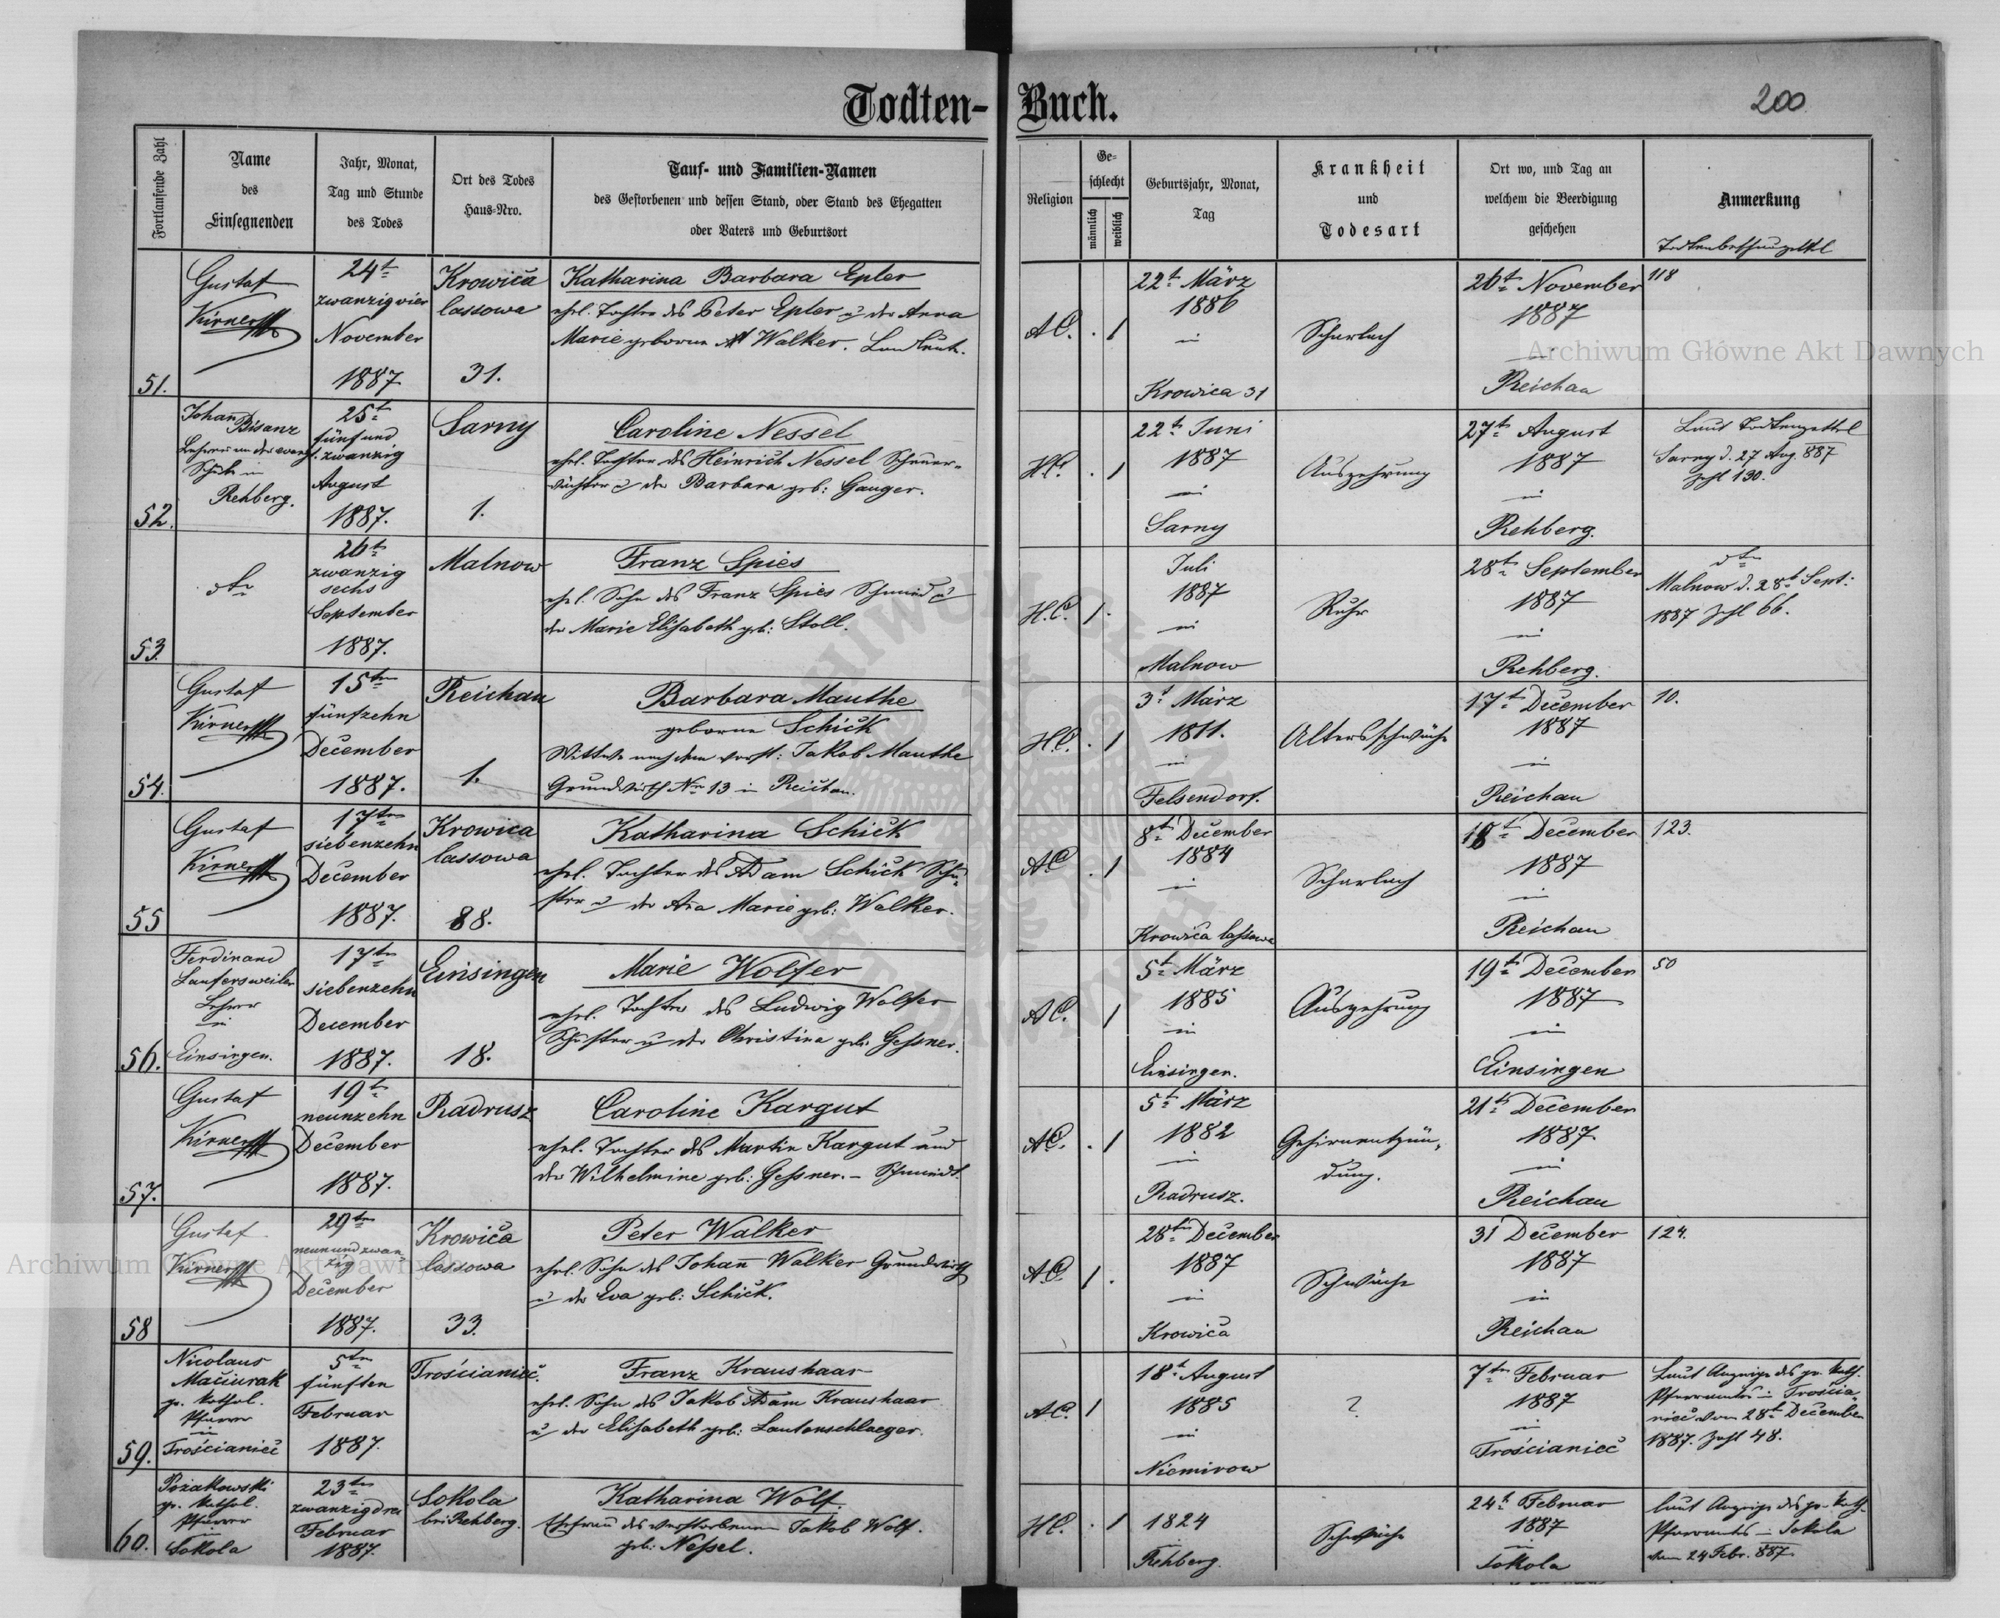 Todten-Buch.
200
Fortlaufende Zahl
Name des Einsegnenden
Jahr, Monat, Tag und Stunde des Todes
Ort des Todes Haus-Nro.
Tauf- und Familien-Namen
des Gestorbenen und dessen Stand, oder Stand des Ehegatten
oder Vaters und Geburtsort
Religion
Ge-schlecht
männlich
weiblich
Geburtsjahr, Monat, Tag
Krankheit und Todesart
Ort wo, und Tag an welchem die Beerdigung geschehen
Anmerkung
51.
Gustaf
24t
zwanzigvier
November
1887
Krowica
lassowa
31.
Katharina Barbara Epler
ehel. Tochter des Peter Epler u der Anna
Marie geborne Walker.
A.C. . 1
22t März
1886
in
Krowica 31
Scharlach
26t November
1887
in
Reichau
118
52.
Johan Bisanz
Lehrer an der evang.
Schule in
Rehberg.
25t
fünf und
zwanzig
August
1887.
Sarny
1.
Caroline Nessel
ehel. Tochter des Heinrich Nessel
u der Barbara geb: Ganger.
H.C. . 1
22t Juni
1887
in
Sarny
Auszehrung
27t August
1887
in
Rehberg.
Laut Todtenzettel
Sarny d. 27 Aug. 887
Zahl 190.
53.
dto
26t
zwanzig
sechs
September
1887.
Malnow
Franz Spies
ehel. Sohn des Franz Spies Schmied u
der Marie Elisabeth geb: Stoll.
H.C. 1 .
Juli
1887
in
Malnow
Ruhr
28t September
1887
in
Rehberg.
dto
Malnow d. 28t Sept:
1887 Zahl 66.
54.
Gustaf
15ten
fünfzehn
December
1887.
Reichau
1.
Barbara Mauthe
geborne Schick
Wittwe nach dem verst: Jakob Mauthe
Grundwirth Nr 13 in Reichau.
H.C. . 1
3t März
1811.
in
Felsendorf.
Altersschwäche
17t December
1887
in
Reichau
10.
55
Gustaf
17ten
siebenzehn
December
1887.
Krowica
lassowa
88.
Katharina Schick
ehel. Tochter des Adam Schick Schu-
ster u der Marie geb: Walker.
A.C. . 1
8t December
1884
in
Krowica lassowa
Scharlach
December
1887
in
Reichau
123.
56.
Ferdinand
Laufersweiler
Lehrer
in
Einsingen.
17ten
siebenzehn
December
1887.
Einsingen
18.
Marie Wolfer
ehel. Tochter des Ludwig Wolfer
Schuster u der Christina geb. Gessner.
A.C. 1
5t März
1885
in
Einsingen.
Auszehrung
19t December
1887
in
Einsingen
50
57.
Gustaf
19t
neunzehn
December
1887.
Radrusz
Caroline Kargut
ehel. Tochter des Martin Kargut und
der Wilhelmine geb: Gessner. – Schmidt.
A.C. . 1
5t März
1882
in
Radrusz.
Gehirnentzün-
dung.
21t December
1887.
in
Reichau
58
Gustaf
29ten
neun und zwan-
zig
December
1887.
Krowica
lassowa
33.
Peter Walker
ehel. Sohn des Johann Walker Grundwirth
u der Eva geb: Schick.
A.C. 1 .
28ten December
1887
in
Krowica
Schwäche
31 December
1887
in
Reichau
124.
59.
Nicolaus
Maciurak
gr. kathol.
Pfarrer
in
Trościaniec
5ten
fünften
Februar
1887.
Trościaniec.
Franz Kraushaar
ehel. Sohn des Jakob Adam Kraushaar
u der Elisabeth geb: Lautenschlaeger.
A.C. 1
18t August
1885
in
Niemirow
?
7ten Februar
1887
in
Trościaniec
Laut Anzeige des gr. kath.
Pfarramtes in Trościa-
niec vom 28t December
1887. Zahl 48.
60.
Pozakowski
gr. kathol.
Pfarrer
in
Sokola
23ten
zwanzigdrei
Februar
1887.
Sokola
bei Rehberg.
Katharina Wolf.
Ehefrau des verstorbenen Jakob Wolf.
geb: Nessel.
H.C. . 1
1824
in
Rehberg.
Schwäche
24t Februar
1887
in
Sokola
laut Anzeige des gr. kath.
Pfarramts in Sokola
vom 24 Febr. 887.
Archiwum Główne Akt Dawnych
Archiwum Główne Akt Dawnych